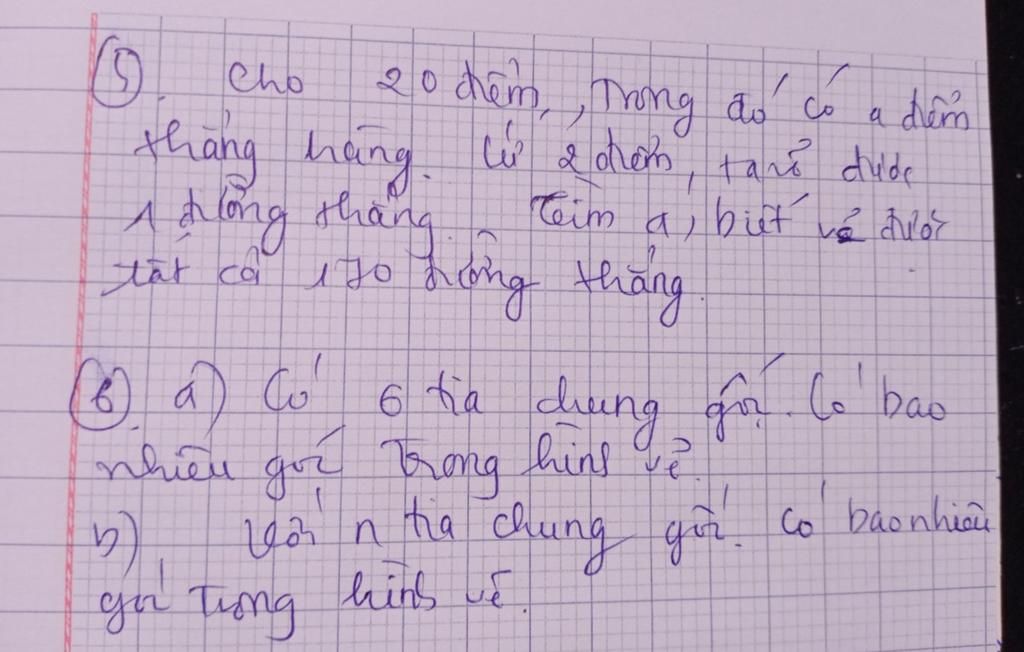 5. Cho 20 điểm, Trong đó có a điểm
thẳng hàng. Cứ 2 điểm, ta vẽ được
1 đường thẳng. Tìm a, biết vẽ được
tất cả 170 đường thẳng.
6. a) Có 6 tia chung gốc. Có bao
nhiêu góc Trong hình vẽ.
b) Với n tia chung gốc. Có bao nhiêu
góc Trong hình vẽ.